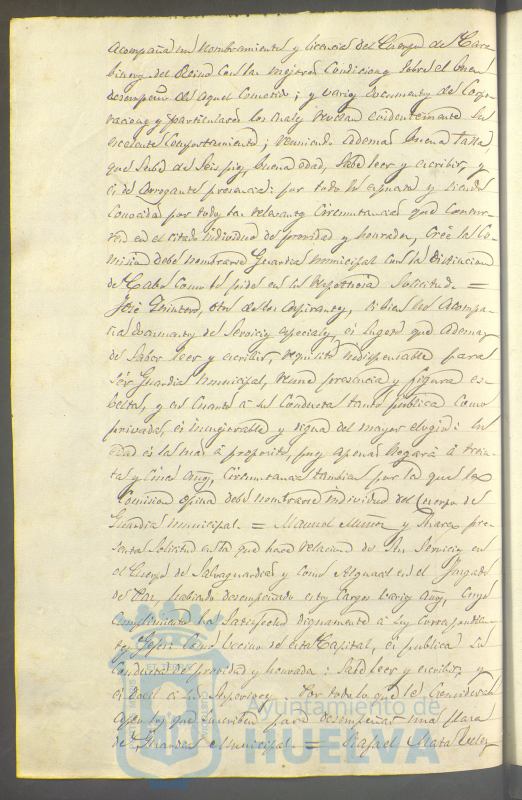 acompaña su nombramiento y licencia del Cuerpo de Cara-
bineros del Reino con las mejores condiciones sobre el buen
desempeño de aquel cometido; y varios documentos de Corpo-
raciones y particulares los cuales revelan evidentemente su
escelente comportamiento; reuniendo ademas buena talla
que sube de seis pies, buena edad, sabe leer y escribir, y
es de arrogante presencia: por todo lo espuesto y siendo
conocidas por todos las relevantes circunstancias que concur-
ren en el citado individuo de providad y honradez, cree la Co-
mision debe nombrarse Guardia municipal con la distincion
de Cabo como lo pide en su solicitud. =
José Quintero, otro de los aspirantes, si bien no acompa-
ña documentos de servicios especiales, es sugeto que ademas
de saber leer y escribir, requisito indispensable para
ser Guardia municipal, reune presencia y figura es-
belta, y en cuanto á su conducta tanto publica como
privada, es inmejorable y digna del mayor elogio: su
edad es la mas á proposito, pues apenas llegará á trein-
ta y cinco años, circunstancias tambien por la que la
Comision opina debe nombrarse individuo del Cuerpo de
Guardia municipal. = Manuel Muñoz y presenta
solicitud en la que hace relacion de sus servicios en
el Cuerpo de Salvaguardias y como Alguacil en el Juzgado
de Paz, habiendo desempeñado estos cargos varios años, cuyo
cumplimiento ha satisfecho dignamente á sus correspondien-
tes Gefes: como vecino de esta Capital, es publica su
conducta de providad y honrada: sabe leer y escribir, y
es docil á sus superiores. Por todo lo que le consideran
para desempeñar una plaza
de Guardia Municipal. = Rafael Mata
Ayuntamiento de
HUELVA